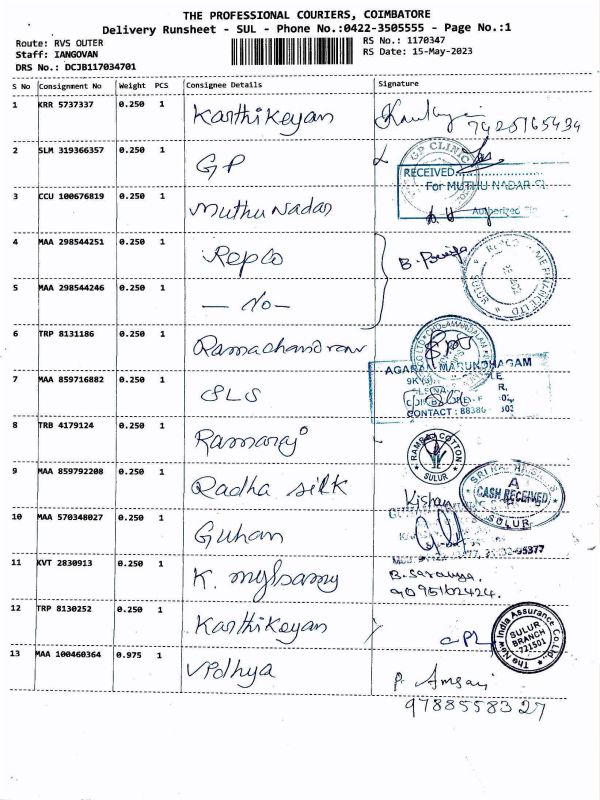 THE PROFESSIONAL COURIERS, COIMBATORE
Delivery Runsheet - SUL - Phone No.:0422-3505555 - Page No.:1
Route: RVS OUTER
Staff: IANGOVAN
DRS No.: DCJB117034701
RS No.: 1170347
RS Date: 15-May-2023
S No Consignment No Weight PCS Consignee Details Signature
1 KRR 5737337 0.250 1 Karthikeyan
2 SLM 319366357 0.250 1 GP
GP CLINIC
RECEIVED
For MUTHU NADAR
3 CCU 100676819 0.250 1 Muthu Nadar
4 MAA 298544251 0.250 1 Repco
SULUR
5 MAA 298544246 0.250 1 — do —
6 TRP 8131186 0.250 1 Ramachandran
CHOLAMANDALAM
7 MAA 859716882 0.250 1 SLS
AGARAN MARUNDHAGAM
CONTACT : 88386
8 TRB 4179124 0.250 1 Ramaraj
RAMRAJ COTTON
SULUR
9 MAA 859792208 0.250 1 Radha silk Kishan
CASH RECEIVED
SULUR
10 MAA 570348027 0.250 1 Guhan
11 KVT 2830913 0.250 1 K. mylsamy B. Saranya.
9095102424.
12 TRP 8130252 0.250 1 Karthikeyan
The New India Assurance Co.Ltd
SULUR
BRANCH
-721501
13 MAA 100460364 0.975 1 Vidhya
9788558327